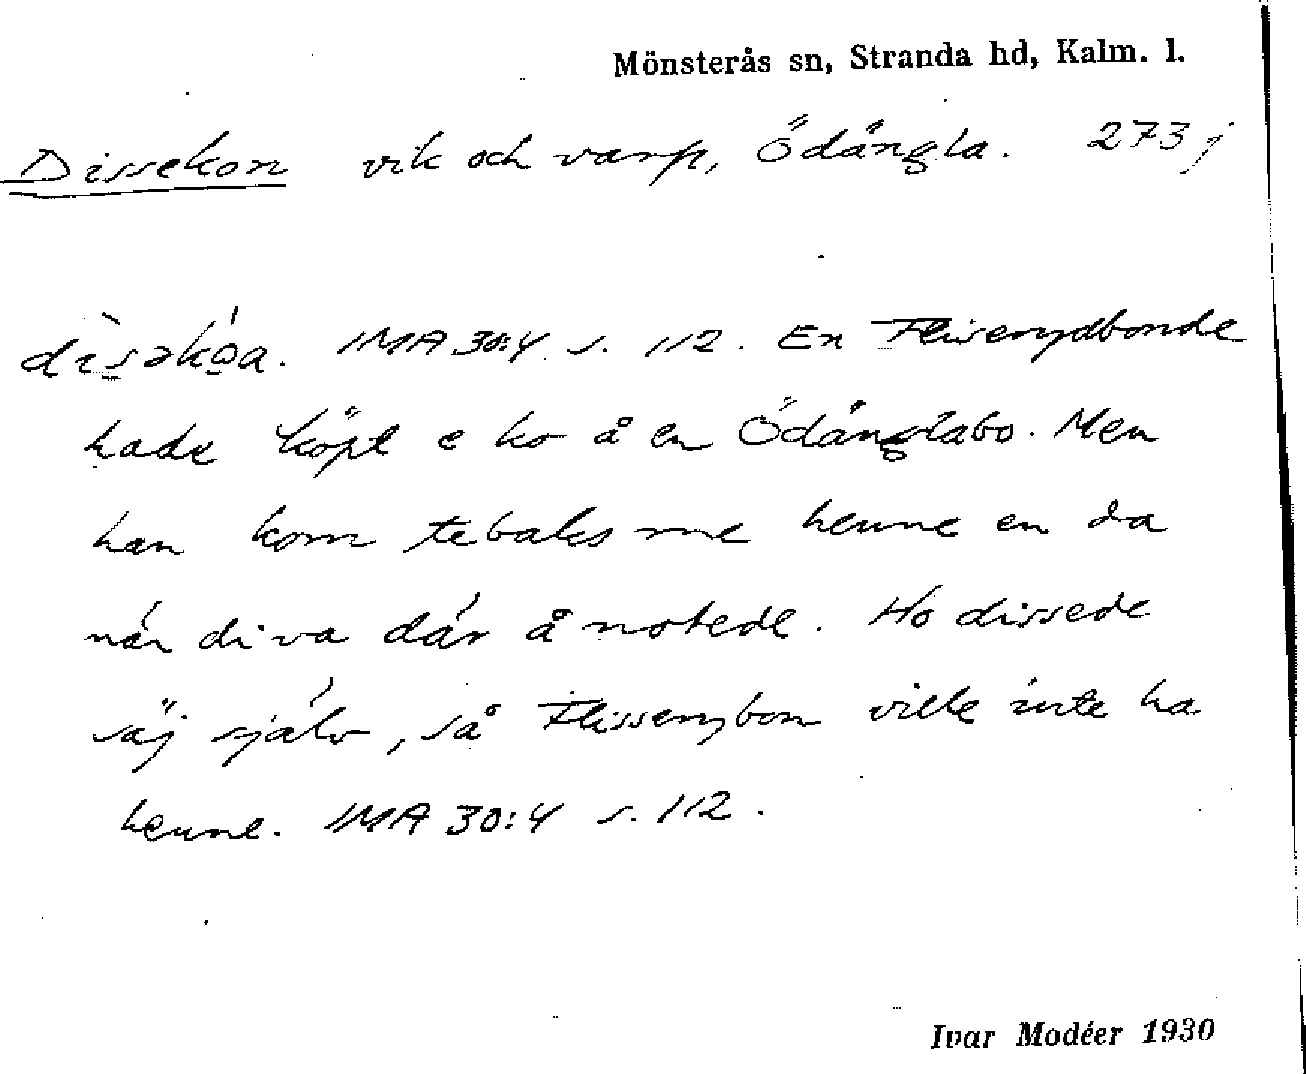 Mönsterås sn, Stranda hd, Kalm. l.
Dissekon vik och varp, Ödångla. 273 j
dìsəkóa. IMA 30:4 s. 112. En Fliserydbonde
hade köpt e ko å en Ödånglabo. Men
han kom tebaks me henne en da
när di va där å notede. Ho dissede
säj själv, så Flissenybon ville inte ha
henne. IMA 30:4 s. 112.
Ivar Modéer 1930